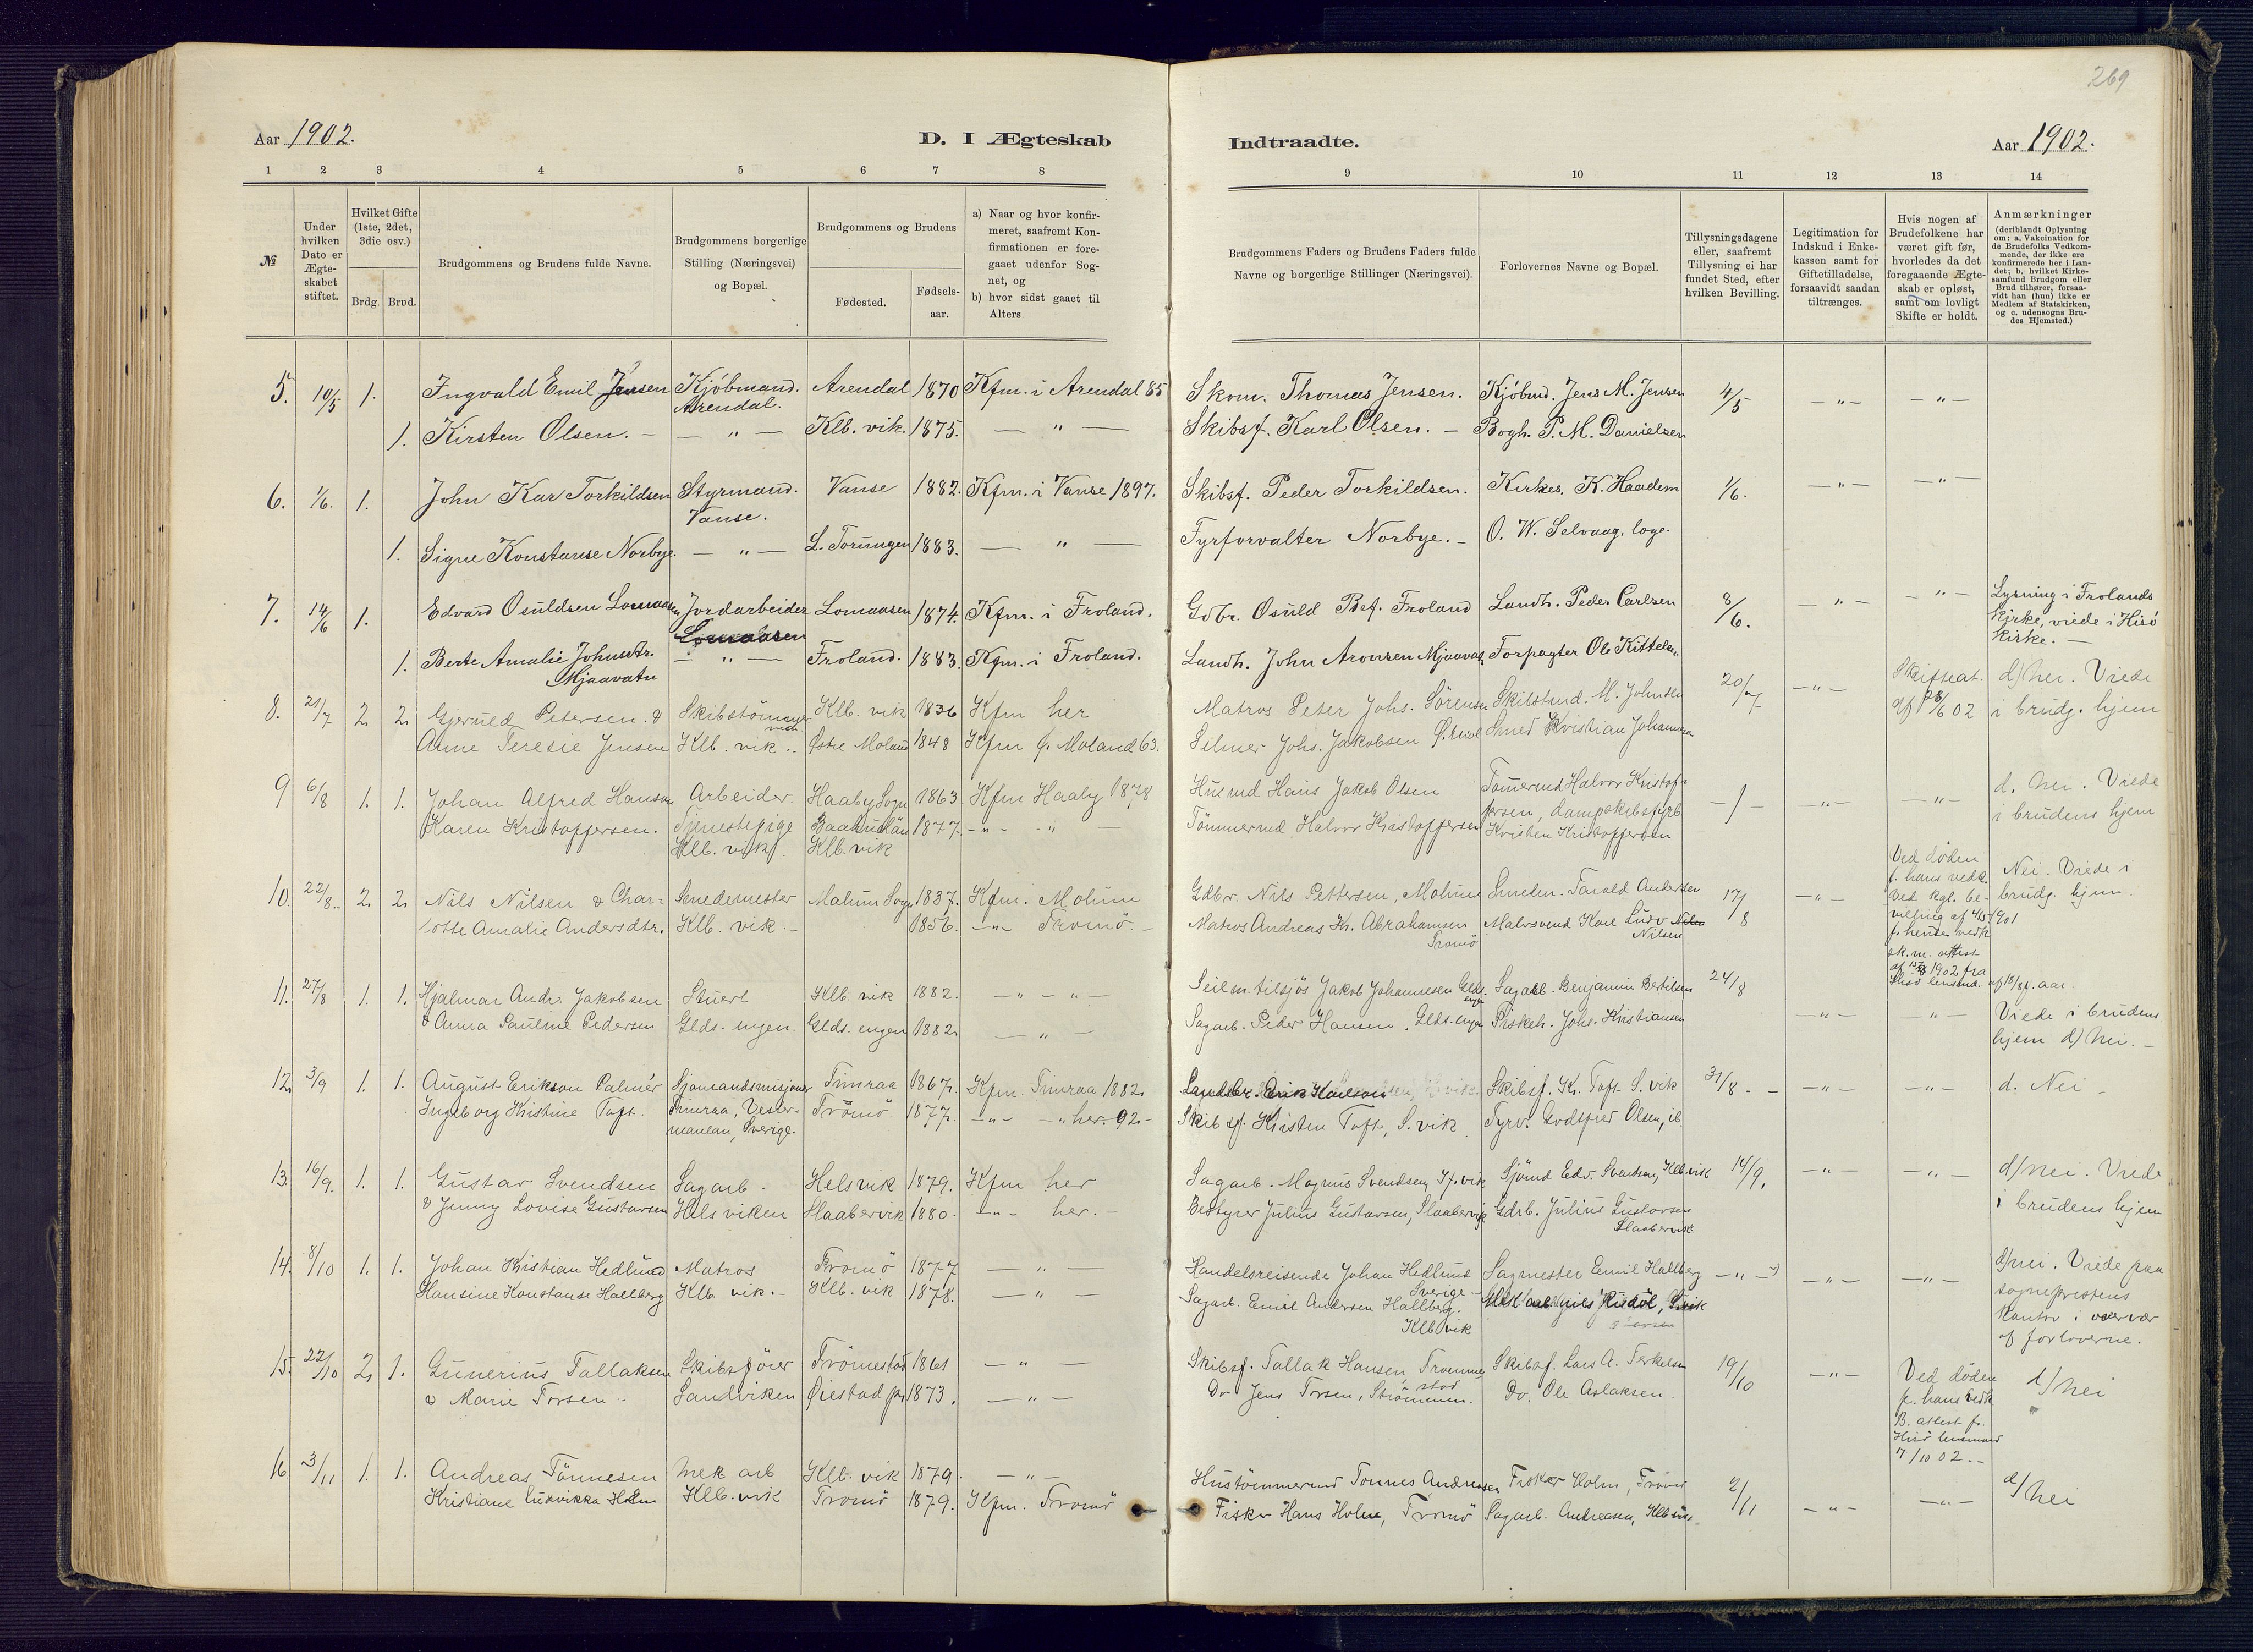 269
Aar 1902.
D. I Ægteskab
Indtraadte.
Aar 1902.
1 2 3 4 5 6 7 8 9 10 11 12 13 14
№
Under hvilken Dato er Ægteskabet stiftet.
Hvilket Gifte (1ste, 2det, 3die osv.)
Brdg. Brud.
Brudgommens og Brudens fulde Navne.
Brudgommens borgerlige Stilling (Næringsvei) og Bopæl.
Brudgommens og Brudens
Fødested.
Fødselsaar.
a) Naar og hvor konfirmeret, saafremt Konfirmationen er foregaaet udenfor Sognet, og
b) hvor sidst gaaet til Alters
Brudgommens Faders og Brudens Faders fulde Navne og borgerlige Stillinger (Næringsvei).
Forlovernes Navne og Bopæl.
Tillysningsdagene eller, saafremt Tillysning ei har fundet Sted, efter hvilken Bevilling.
Legitimation for Indskud i Enkekassen samt for Giftetilladelse, forsaavidt saadan tiltrænges.
Hvis nogen af Brudefolkene har været gift før, hvorledes da det foregaaende Ægteskab er opløst, samt om lovligt Skifte er holdt.
Anmærkninger (deriblandt Oplysning om: a. Vakcination for de Brudefolks Vedkommende, der ikke ere konfirmerede her i Landet; b. hvilket Kirkesamfund Brudgom eller Brud tilhører, forsaavidt han (hun) ikke er Medlem af Statskirken, og c. udensogns Brudes Hjemsted.)
5. 10/5 1. Ingvald Emil Jensen Kjöbmand. Arendal. Arendal 1870 Kfm. i Arendal 85 Skom. Thomas Jensen. Kjöbmd. Jens M. Jensen 4/5 — " — — " —
1. Kirsten Olsen. — — " — Klb. vik. 1875. — " — Skibsf. Karl Olsen. — Bogh. P. M. Danielsen
6. 1/6. 1. John Kar Torkildsen Styrmand. Vanse. Vanse 1882. Kfm. i Vanse 1897. Skibsf. Peder Torkildsen. Kirkes. K. Haadem 1/6. — " — — " —
1. Signe Konstanse Norbye. — " — L. Torungen 1883. — " — Fyrforvalter Norbye. — O. W. Selvaag, loge.
7. 14/6 1. Edvard Osuldsen Lomaasen Jordarbeider Lomaasen Lomaasen 1874. Kfm. i Froland. Gdbr. Osuld Froland Landh. Peder Carlsen 8/6. — " — — " — Lysning i Frolands Kirke, viede i Hisö Kirke. —
1. Berte Amalie Johnsdtr. Mjaavatn — " — Froland. 1883. Kfm. i Froland. Landh. John Aronsen Mjaavatn Forpagter Ole Kittelsen
8. 21/7 2. 2. Gjerued Petersen & Skibstömmermd. Klb. vik 1836 Kfm her Matros Peter Johs. Sörensen Skibstmd. M. Johnsen 20/7 — " — Skifteat. af 28/6 02 d) nei. Viede i brudg. hjem
Anne Teresie Jensen Klb. vik .. Østre Moland 1848 Kfm Ø. Moland 63. Selmer Johs. Jakobsen Smed Kristian Johannesen
9 6/8 1. 1. Johan Alfred Hanson Arbeider. Haaby Sogn 1863 Kfm Haaby 1878 Husmd Hans Jakob Olsen Tömermd Halvor Kristoffersen, dampskibsfyrb. — / — — " — — " — d. Nei. Viede i brudens hjem
Karen Kristoffersen. Tjenestepige Klb. vik Baahuslän Klb. vik 1877. — " — " — Tömmermd Halvor Kristoffersen Kristen Kristoffersen
10. 22/8 2. 2. Nils Nilsen & Char= Smedemester Malum Sogn 1837. Kfm. Molum Gdbr. Nils Pettersen, Molum Smeden. Tarald Andersen 17/8 — " — Ved döden f. hans vedk. Ved kgl. bevilling af 4/5 1901 f. hendes vedk sk. m. attest af 15/8 1902 fra Hisö lensmd. Nei. Viede i brudg. hjem.
lotte Amalie Andersdtr. Klb. vik. — 1856. — " — Tromö. — Matros Andreas Kr. Abrahamsen Tromö Malersvend Karl Ludv Nilsen
11. 27/8 1. 1. Hjalmar Andr. Jakobsen Stuert Klb. vik 1882. — " — " — Seilm. tilsjös Jakob Johannesen Glds. engen Sagarb. Benjamin Bertilsen 24/8 af 18/8 f. aar.
& Anna Pauline Pedersen Glds. engen. Glds. engen 1882. — " — Sagarb. Peder Hansen. Glds. engen Fiskeh. Johs. Kristiansen — " — — " — Viede i brudens hjem d) nei. —
12. 3/9 1. 1. August Erikson Palmér Sjömandsmisjonær Timraa 1867. Kfm. Timraa 1882. Landbr. Erik Karlson Skibsf. Kr. Toft S. vik 31/8 — — " — — " — d. Nei
Ingeborg Kristine Toft. Timraa, Sverige. Tromö 1877. — " — " her. 92 — Skibsf. Kristen Toft, S. vik. Fyrv. Godtfred Olsen, ib.
13. 16/9. 1. 1. Gustav Svendsen Sagarb. Helsvik 1879. Kfm her Sagarb. Magnus Svendsen, Sjömd Edv. Svendsen, Klb. vik 14/9. — " — — " — d) nei. Viede i brudens hjem
& Jenny Lovise Gustavsen Helsviken Slaabervik 1880. — " — her. — Bestyrer Julius Gustavsen, Slaabervik Gdrb. Julius Gustavsen Slaabervik
14. 8/10 1. 1. Johan Kristian Hedlund Matros Tromö 1877 — " — Handelsreisende Johan Hedlund Sverige Sagmester Emil Hallberg — " — — " — — " — d) nei. Viede paa sogneprestens kontor i overvær af forloverne.
Hansine Konstanse Hallberg Klb. vik. — Klb. vik 1878. — " — Sagarb. Emil Andersen Hallberg. Klb vik
15. 22/10 2. 1. Gunerius Tallaksen Skibsförer Tromestad 1861 — " — Skibsf. Tallak Hansen Trommestad Skibsf. Lars A. Terkelsen 19/10 — " — Ved döden f. hans vedk. B. attest fr. Hisö lensmand 7/10 02. — d) nei
& Marie Torsen. Sandviken Øiestad pr. 1873. — " — Do Jens Torsen, Strömmen. Do. Ole Aslaksen.
16. 3/11 1. 1. Andreas Tönnesen mek arb Klb. vik 1879. — " — Hustömmermd Tönnes Andreassen Fisker Holm, Tromö 2/11 d/ nei
Kristiane Ludvikka Holm Klb. vik Tromö 1879. Kfm. Tromö Fisker Hans Holm, Tromö Sagarb. Andreasen, — " — — " —